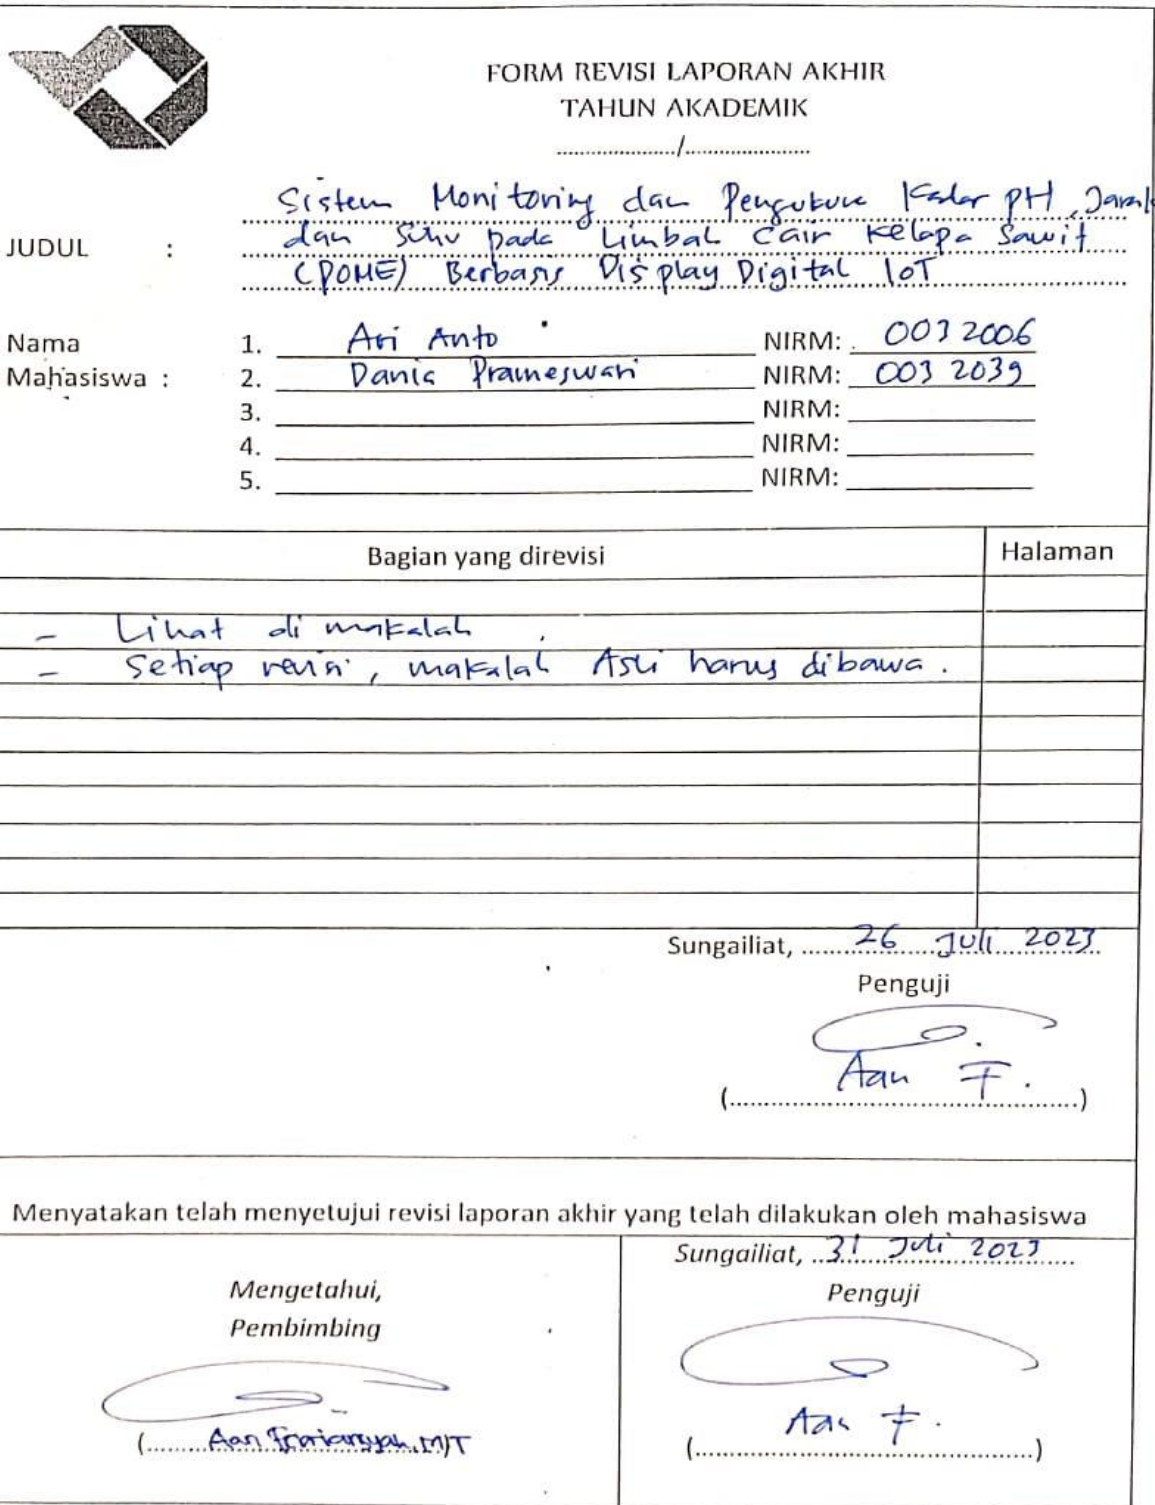 FORM REVISI LAPORAN AKHIR
TAHUN AKADEMIK
...................../......................
JUDUL : Sistem Monitoring dan Pengukuran Kadar pH, Jarak
dan Suhu pada Limbah Cair Kelapa Sawit
(POME) Berbasis Display Digital IoT
Nama
Mahasiswa :
1. Ari Anto NIRM: 0032006
2. Dania Prameswari NIRM: 0032039
3. NIRM:
4. NIRM:
5. NIRM:
Bagian yang direvisi Halaman
- Lihat di makalah
- Setiap revisi, makalah Asli harus dibawa.
Sungailiat, 26 Juli 2023
Penguji
Aan F.
(..............................................)
Menyatakan telah menyetujui revisi laporan akhir yang telah dilakukan oleh mahasiswa
Mengetahui,
Pembimbing
(........ Aan M.T
Sungailiat, 31 Juli 2023
Penguji
Aan F.
(..............................................)